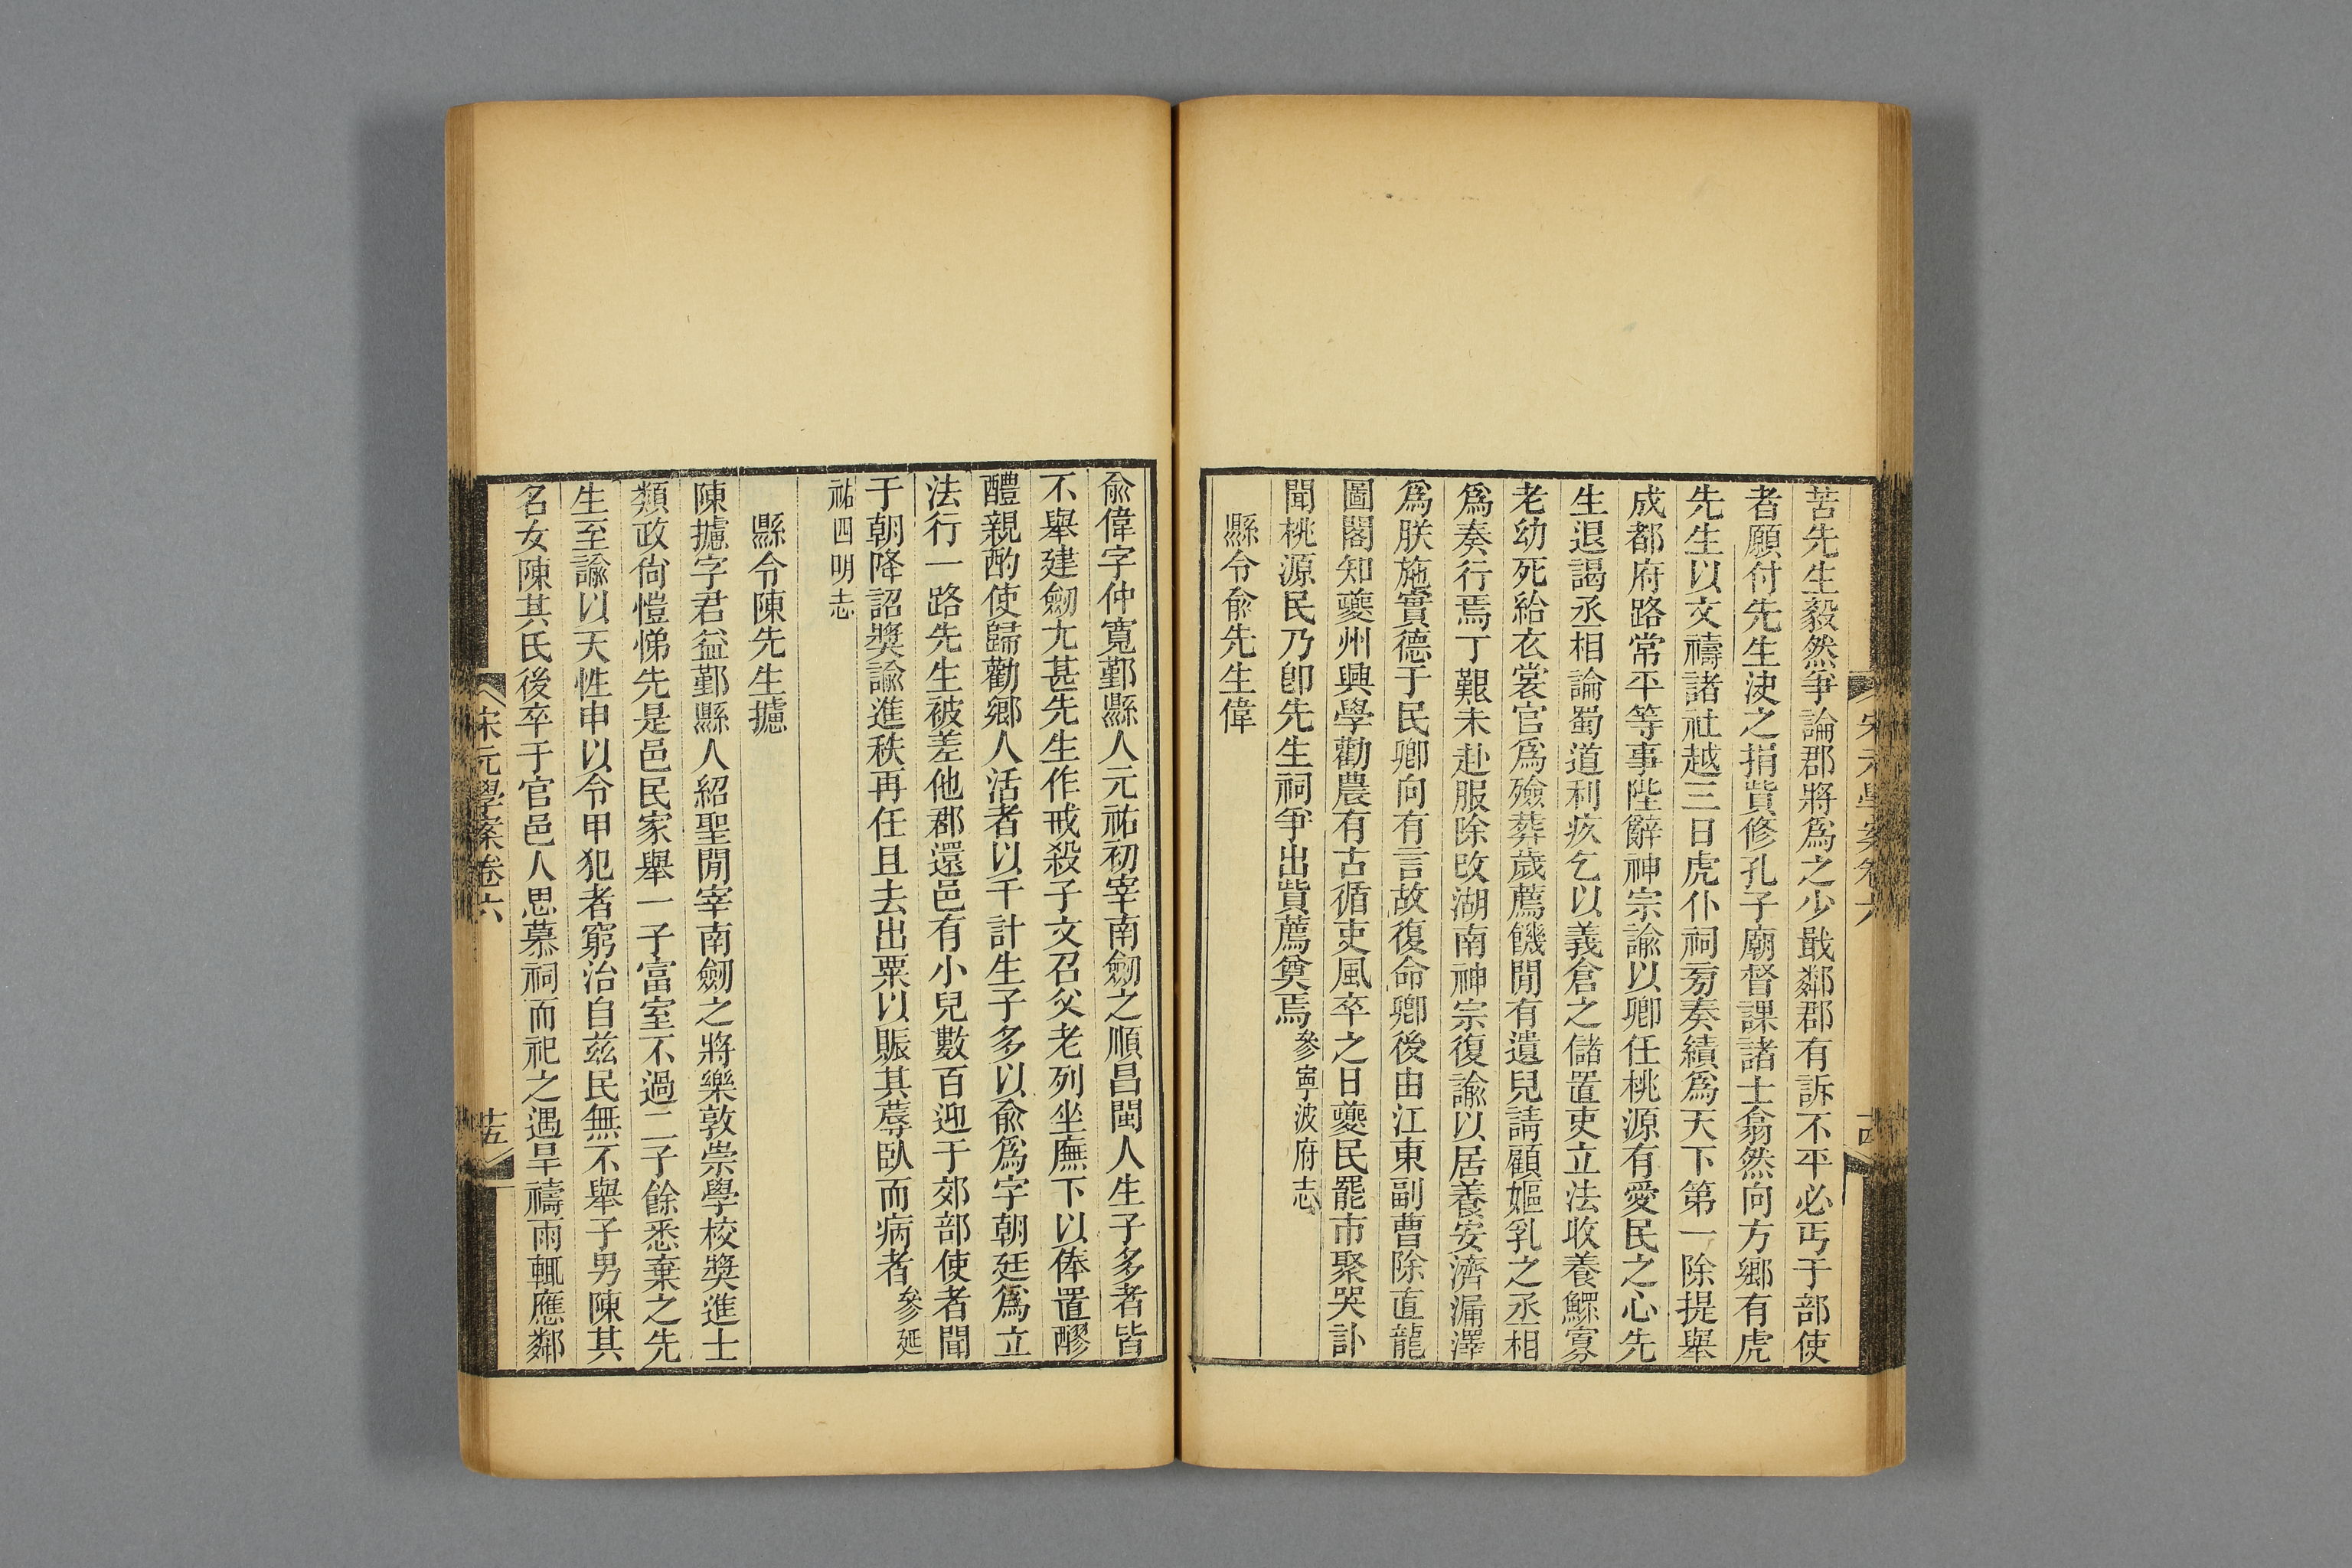 苦先生毅然爭論郡將爲之少戢鄰郡有訴不平必丐于部使
者願付先生決之捐貲修孔子廟督課諸士翕然向方鄉有虎
先生以文禱諸社越三日虎仆祠旁奏績爲天下第一除提舉
成都府路常平等事陛辭神宗諭以卿任桃源有愛民之心先
生退謁丞相論蜀道利疚乞以義倉之儲置吏立法收養鰥寡
老幼死給衣裳官爲殮葬歲薦饑閒有遺兒請顧嫗乳之丞相
爲奏行焉丁艱未赴服除改湖南神宗復諭以居養安濟漏澤
爲朕施實德于民卿向有言故復命卿後由江東副曹除直龍
圖閣知夔州興學勸農有古循吏風卒之日夔民罷市聚哭訃
聞桃源民乃卽先生祠爭出貲薦奠焉參寧波府志
縣令俞先生偉
俞偉字仲寬鄞縣人元祐初宰南劒之順昌閩人生子多者皆
不舉建劒尢甚先生作戒殺子文召父老列坐廡下以俸置醪
醴親酌使歸勸鄉人活者以千計生子多以俞爲字朝廷爲立
法行一路先生被差他郡還邑有小兒數百迎于郊部使者聞
于朝降詔獎諭進秩再任且去出粟以賑其蓐臥而病者參延
祐四明志
縣令陳先生攄
陳攄字君益鄞縣人紹聖閒宰南劒之將樂敦崇學校獎進士
類政尙愷悌先是邑民家舉一子富室不過二子餘悉棄之先
生至諭以天性申以令甲犯者窮治自兹民無不舉子男陳其
名女陳其氏後卒于官邑人思慕祠而祀之遇旱禱雨輒應鄰
宋元學案卷六
十五